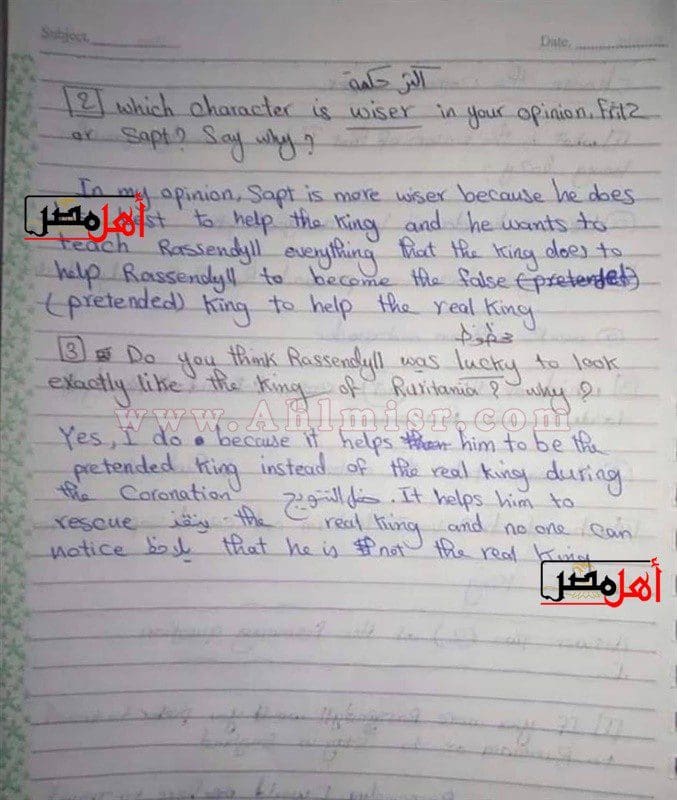 Subject,
Date,
أكثر حكمة
[2] which character is wiser in your opinion, Fritz
or Sapt? Say why?
In my opinion, Sapt is more wiser because he does
أهل مصر
to help the King and he wants to
teach Rassendyll everything that the King does to
help Rassendyll to become the false (pretended)
(pretended) King to help the real King
محظوظ
[3] Do you think Rassendyll was lucky to look
exactly like the King of Ruritania? why?
www.Ahlmisr.com
Yes, I do because it helps him to be the
pretended King instead of the real King during
the Coronation حفل التتويج. It helps him to
rescue ينقذ the real King and no one can
notice يلاحظ that he is not the real King
أهل مصر